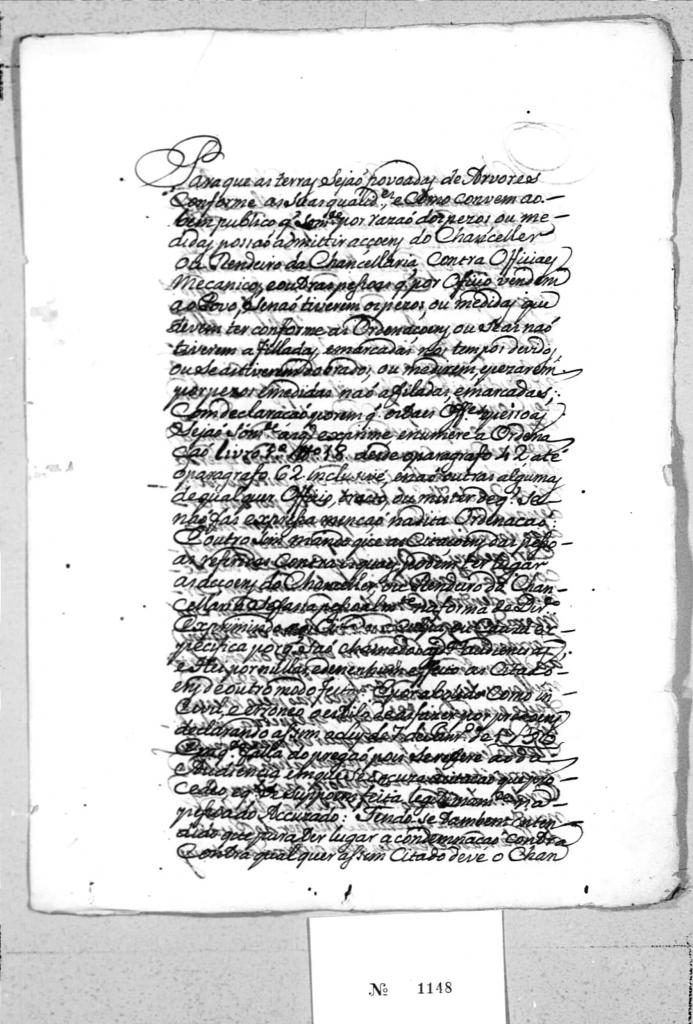 Para que as terras sejaõ povoadas de Arvores
conforme as suas qualid.es, e como convem ao
bem publico q. som.te por razaõ dos pezos ou me-
didas possaõ admittir acçoens do Chanceller
ou Rendeiro da Chancellaria contra Officiaes
Mecanicos, e outras pessoas q. por Officio vendem
ao Povo, se naõ tiverem os pezos, ou medidas que
devem ter conforme as Ordenaçoens, ou se as naõ
tiverem afilladas, e marcadas nos tempos devidos,
ou se as tiverem dobradas, ou medirem, e pezarem
por pezos e medidas naõ afiladas, e marcadas:
Com declaraçaõ porem q. os taes Off.es
sejaõ som.te os q. exprime e numera a Ordena
çaõ Livro 1.º tt.º 18 desde o paragrafo 42 até
o paragrafo 62 inclusivé, e naõ outras algumas
de qualquer Officio, tracto, ou mister de q. se
naõ fas expressa mençaõ na dita Ordenaçaõ:
E outro sim mando que as Citaçoens das pesso-
as referidas contra as quaes podem ter lugar
as acçoens do Chanceller, ou Rendeiro da Chan-
cellaria se façaõ pessoalm.te na forma de Dir.to
Exprimindo
pecifica porq. saõ chamados ás Audiencias,
e Hei por nullas, e de nenhum effeito as Citaço-
ens de outro modo feitas. E por abolido como in-
civil e erroneo o estilo de as fazer por pregoens
declarando assim a Ley de 7 de Janr.º de
Em q.to falla do pregaõ pois se refere ao da
Audiencia em que se accuza a citaçaõ que
suppoem feita legitimam.te na
pessoa do Accuzado: Tendo-se tambem enten-
dido que para ter lugar a condemnaçaõ contra
Contra qualquer assim Citado deve o Chan
Nº 1148